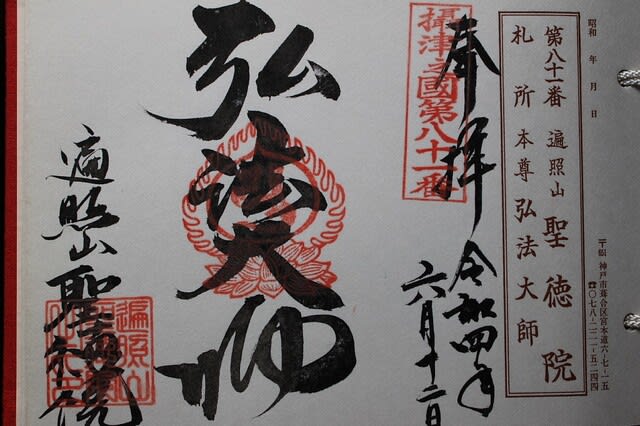 昭和 年 月 日
神戸市葺合区宮本通六-七-一五
☎〇七八-二二一-五二四四
第八十一番 遍照山 聖徳院
札所 本尊 弘法大師
奉拝 令和四年
六月十二日
攝津之國第八十一番
弘法大師
遍照山 聖徳院
遍照山